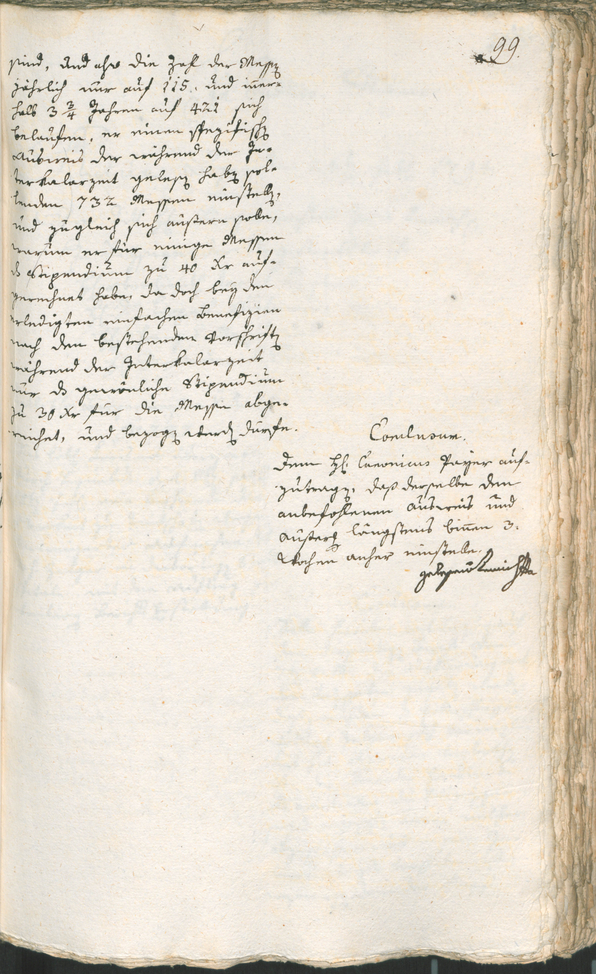 99.
sind, und also die Zahl der Messen
jährlich nur auf 115. und inner-
halb 3 3/4 Jahren auf 421 sich
belaufen, er einen spezifischen
Ausweis der während der In-
terkalarzeit gelesen haben sol-
lenden 732 Messen einstellen,
und zugleich sich äußern solle,
warum er für einige Messen
ds Stipendium zu 40 Xr auf-
gerechnet habe, da doch bey den
erledigten einfachen Benefizien
nach den bestehenden Vorschriften
während der Interkalarzeit
nur ds gewöhnliche Stipendium
zu 30 Xr für die Messe abge-
reichet, und bezogen werden dürfe.
Conclusum.
Dem H. Canonicus Payer auf-
zutragen, daß derselbe den
anbefohlenen Ausweis und
Äußerg längstens binnen 3.
Wochen anher einstelle.